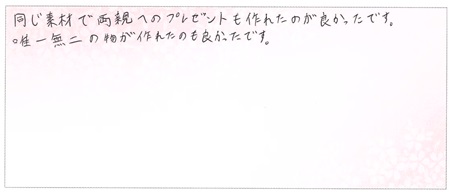 同じ素材で両親へのプレゼントも作れたのが良かったです。
○唯一無二の物が作れたのも良かったです。